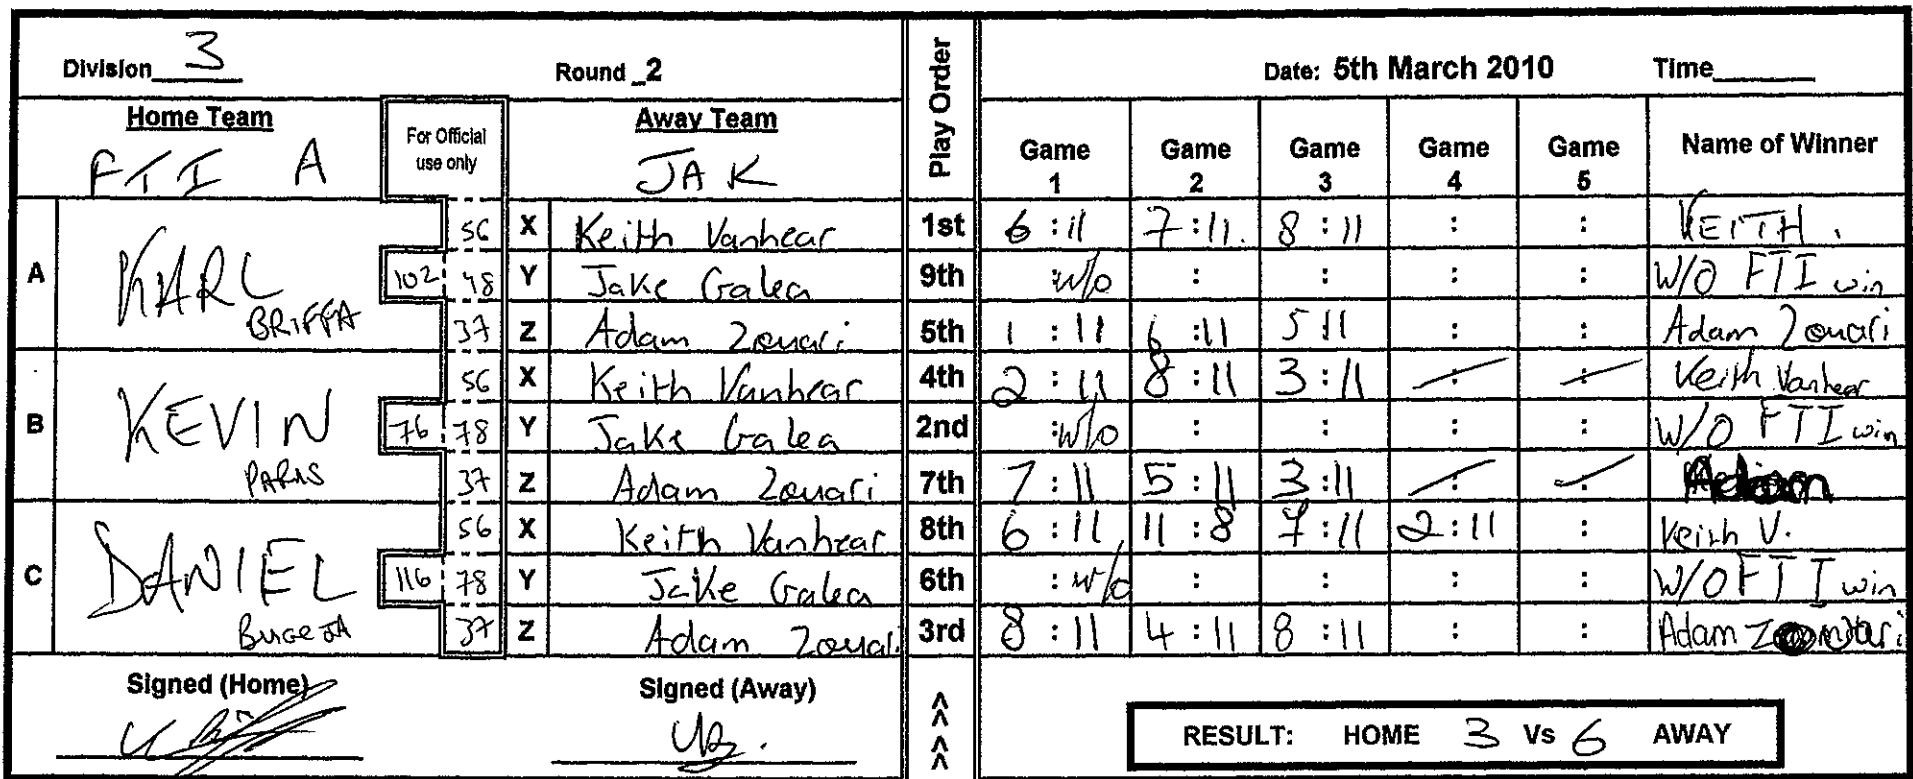 Division 3 Round 2 Play Order Date: 5th March 2010 Time
Home Team For Official use only Away Team Game 1 Game 2 Game 3 Game 4 Game 5 Name of Winner
FTI A JAK
A KARL BRIFFA 56 X Keith Vanhear 1st 6 : 11 7 : 11 8 : 11 : : KEITH.
102 48 Y Jake Galea 9th : w/o : : : : W/O FTI win
37 Z Adam Zouari 5th 1 : 11 6 : 11 5 : 11 : : Adam Zouari
B KEVIN PARIS 56 X Keith Vanhear 4th 2 : 11 8 : 11 3 : 11 : : Keith Vanhear
76 78 Y Jake Galea 2nd : w/o : : : : W/O FTI win
37 Z Adam Zouari 7th 7 : 11 5 : 11 3 : 11 : : Adam
C DANIEL BUGEJA 56 X Keith Vanhear 8th 6 : 11 11 : 8 7 : 11 2 : 11 : Keith V.
116 78 Y Jake Galea 6th : w/o : : : : W/O FTI win
37 Z Adam Zouari 3rd 8 : 11 4 : 11 8 : 11 : : Adam
Signed (Home) Signed (Away) < < < <
RESULT: HOME 3 Vs 6 AWAY